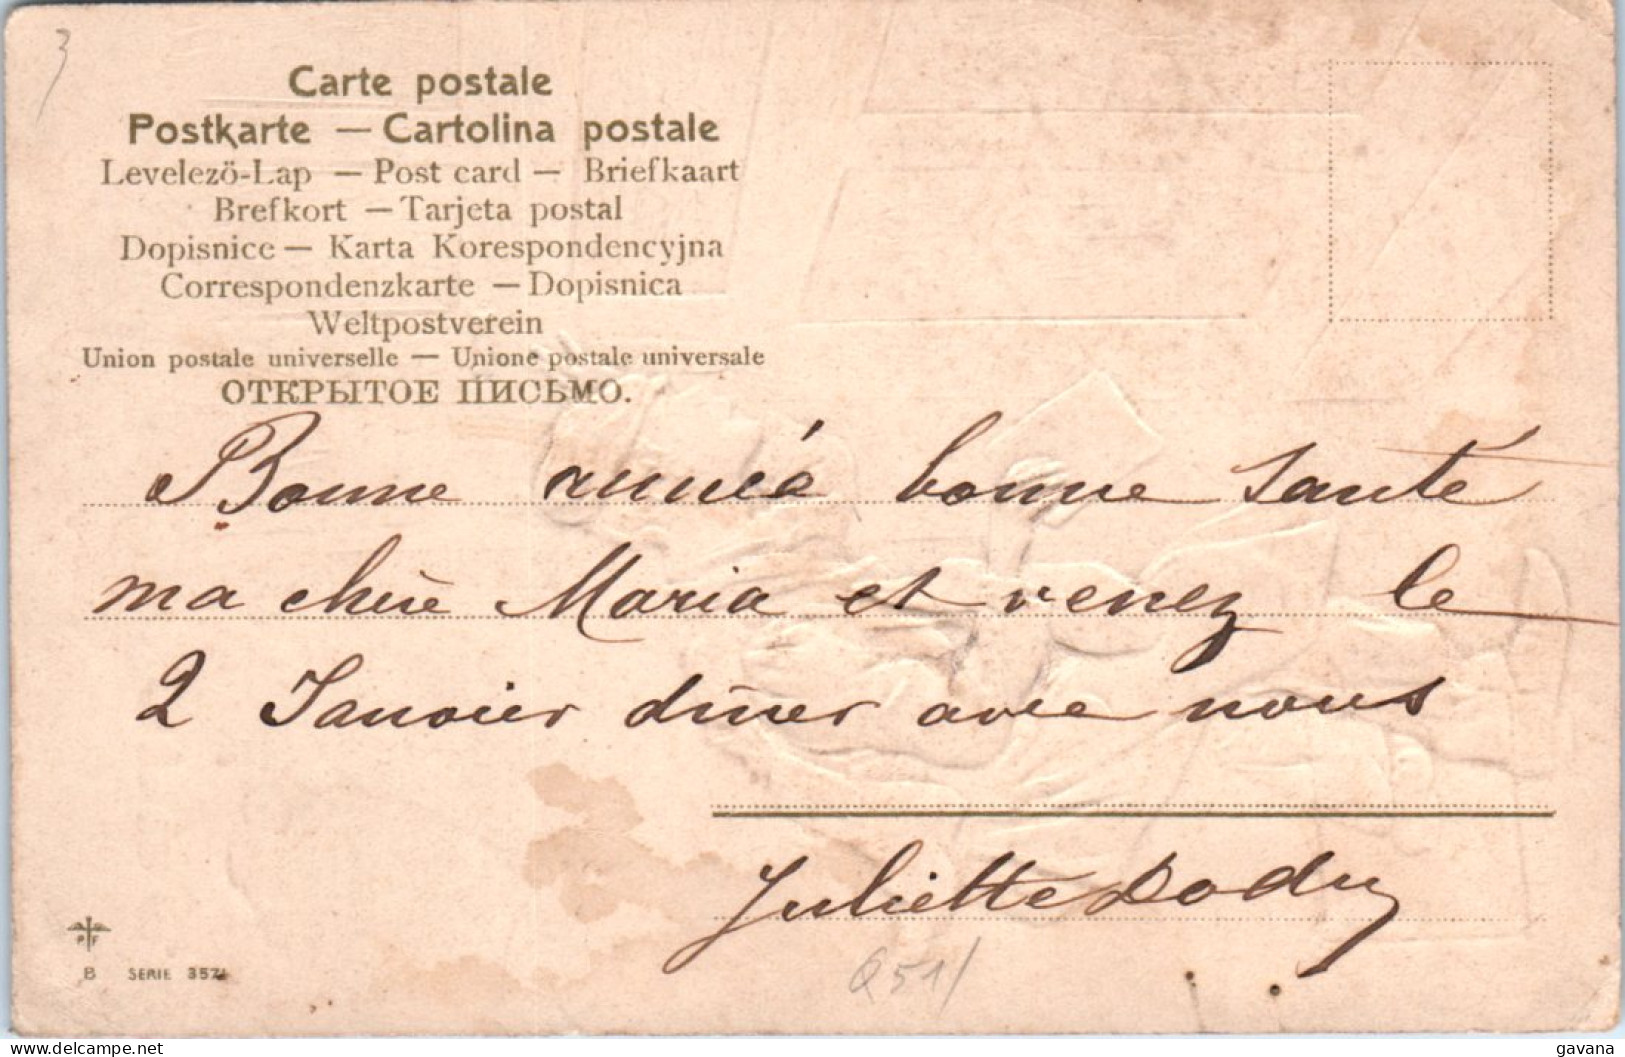 3
Carte postale
Postkarte — Cartolina postale
Levelezö-Lap — Post card — Briefkaart
Brefkort — Tarjeta postal
Dopisnice — Karta Korespondencyjna
Correspondenzkarte — Dopisnica
Weltpostverein
Union postale universelle — Unione postale universale
ОТКРЫТОЕ ПИСЬМО.
Bonne année bonne Santé
ma chère Maria et venez le
2 Janvier dîner avec nous
Juliette Dodry
Q51/
P F
B SERIE 3571
gavana
www.delcampe.net